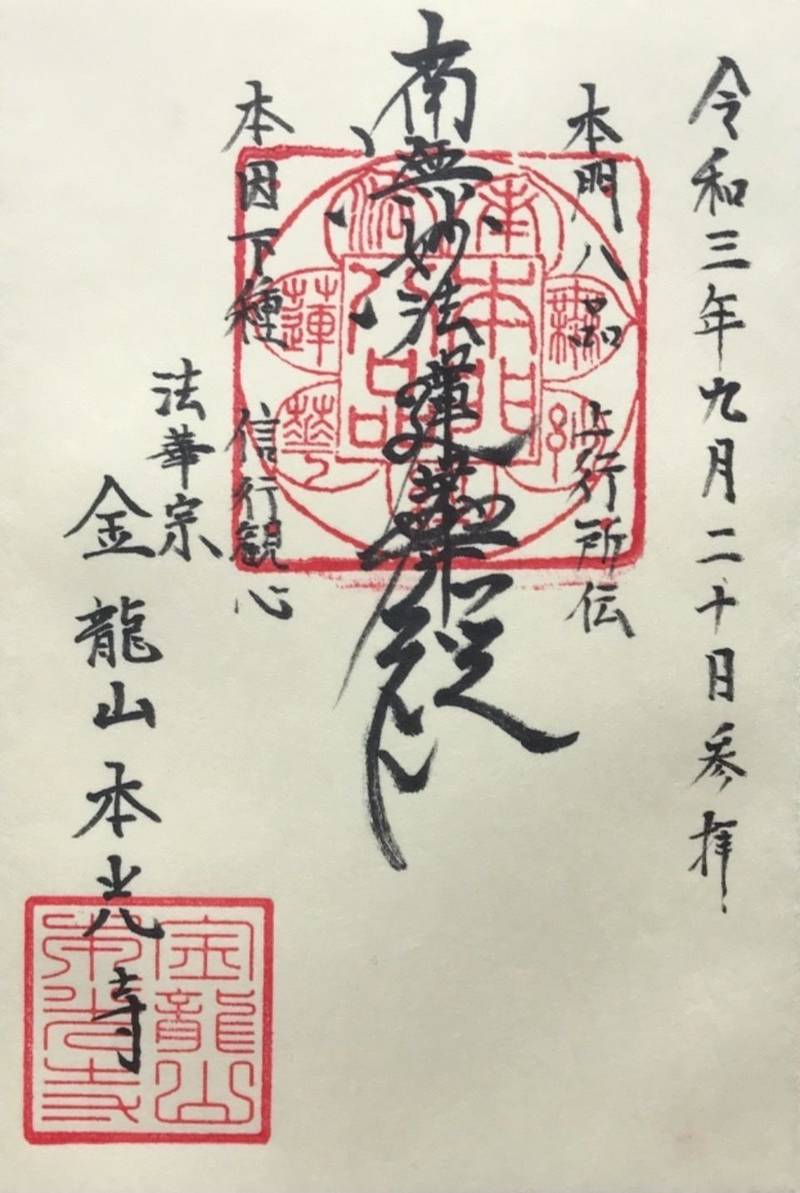 令和三年九月二十日参拝
本門八品 上行所伝
南無妙法蓮華経
本因下種 信行観心
法華宗
金龍山本光寺
南無妙法蓮華経
本門八品
金龍山
本光寺